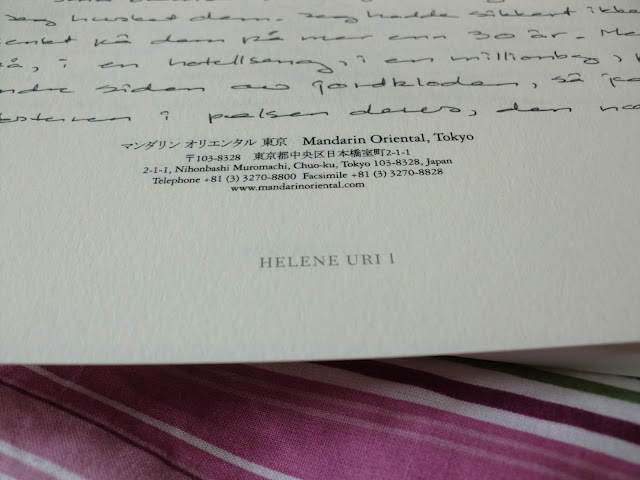 jeg husket dem. Jeg hadde sikkert ikke
på dem på mer enn 30 år. Me
på, i en hotellseng, i en millionby,
siden av jordkloden, så
i pelsen deres, den
マンダリン オリエンタル 東京 Mandarin Oriental, Tokyo
〒103-8328 東京都中央区日本橋室町2-1-1
2-1-1, Nihonbashi Muromachi, Chuo-ku, Tokyo 103-8328, Japan
Telephone +81 (3) 3270-8800 Facsimile +81 (3) 3270-8828
www.mandarinoriental.com
HELENE URI 1